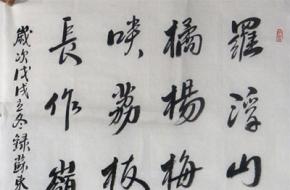 羅浮山
橘楊梅
啖荔枝
長作嶺
歲次戊戌立冬錄蘇東